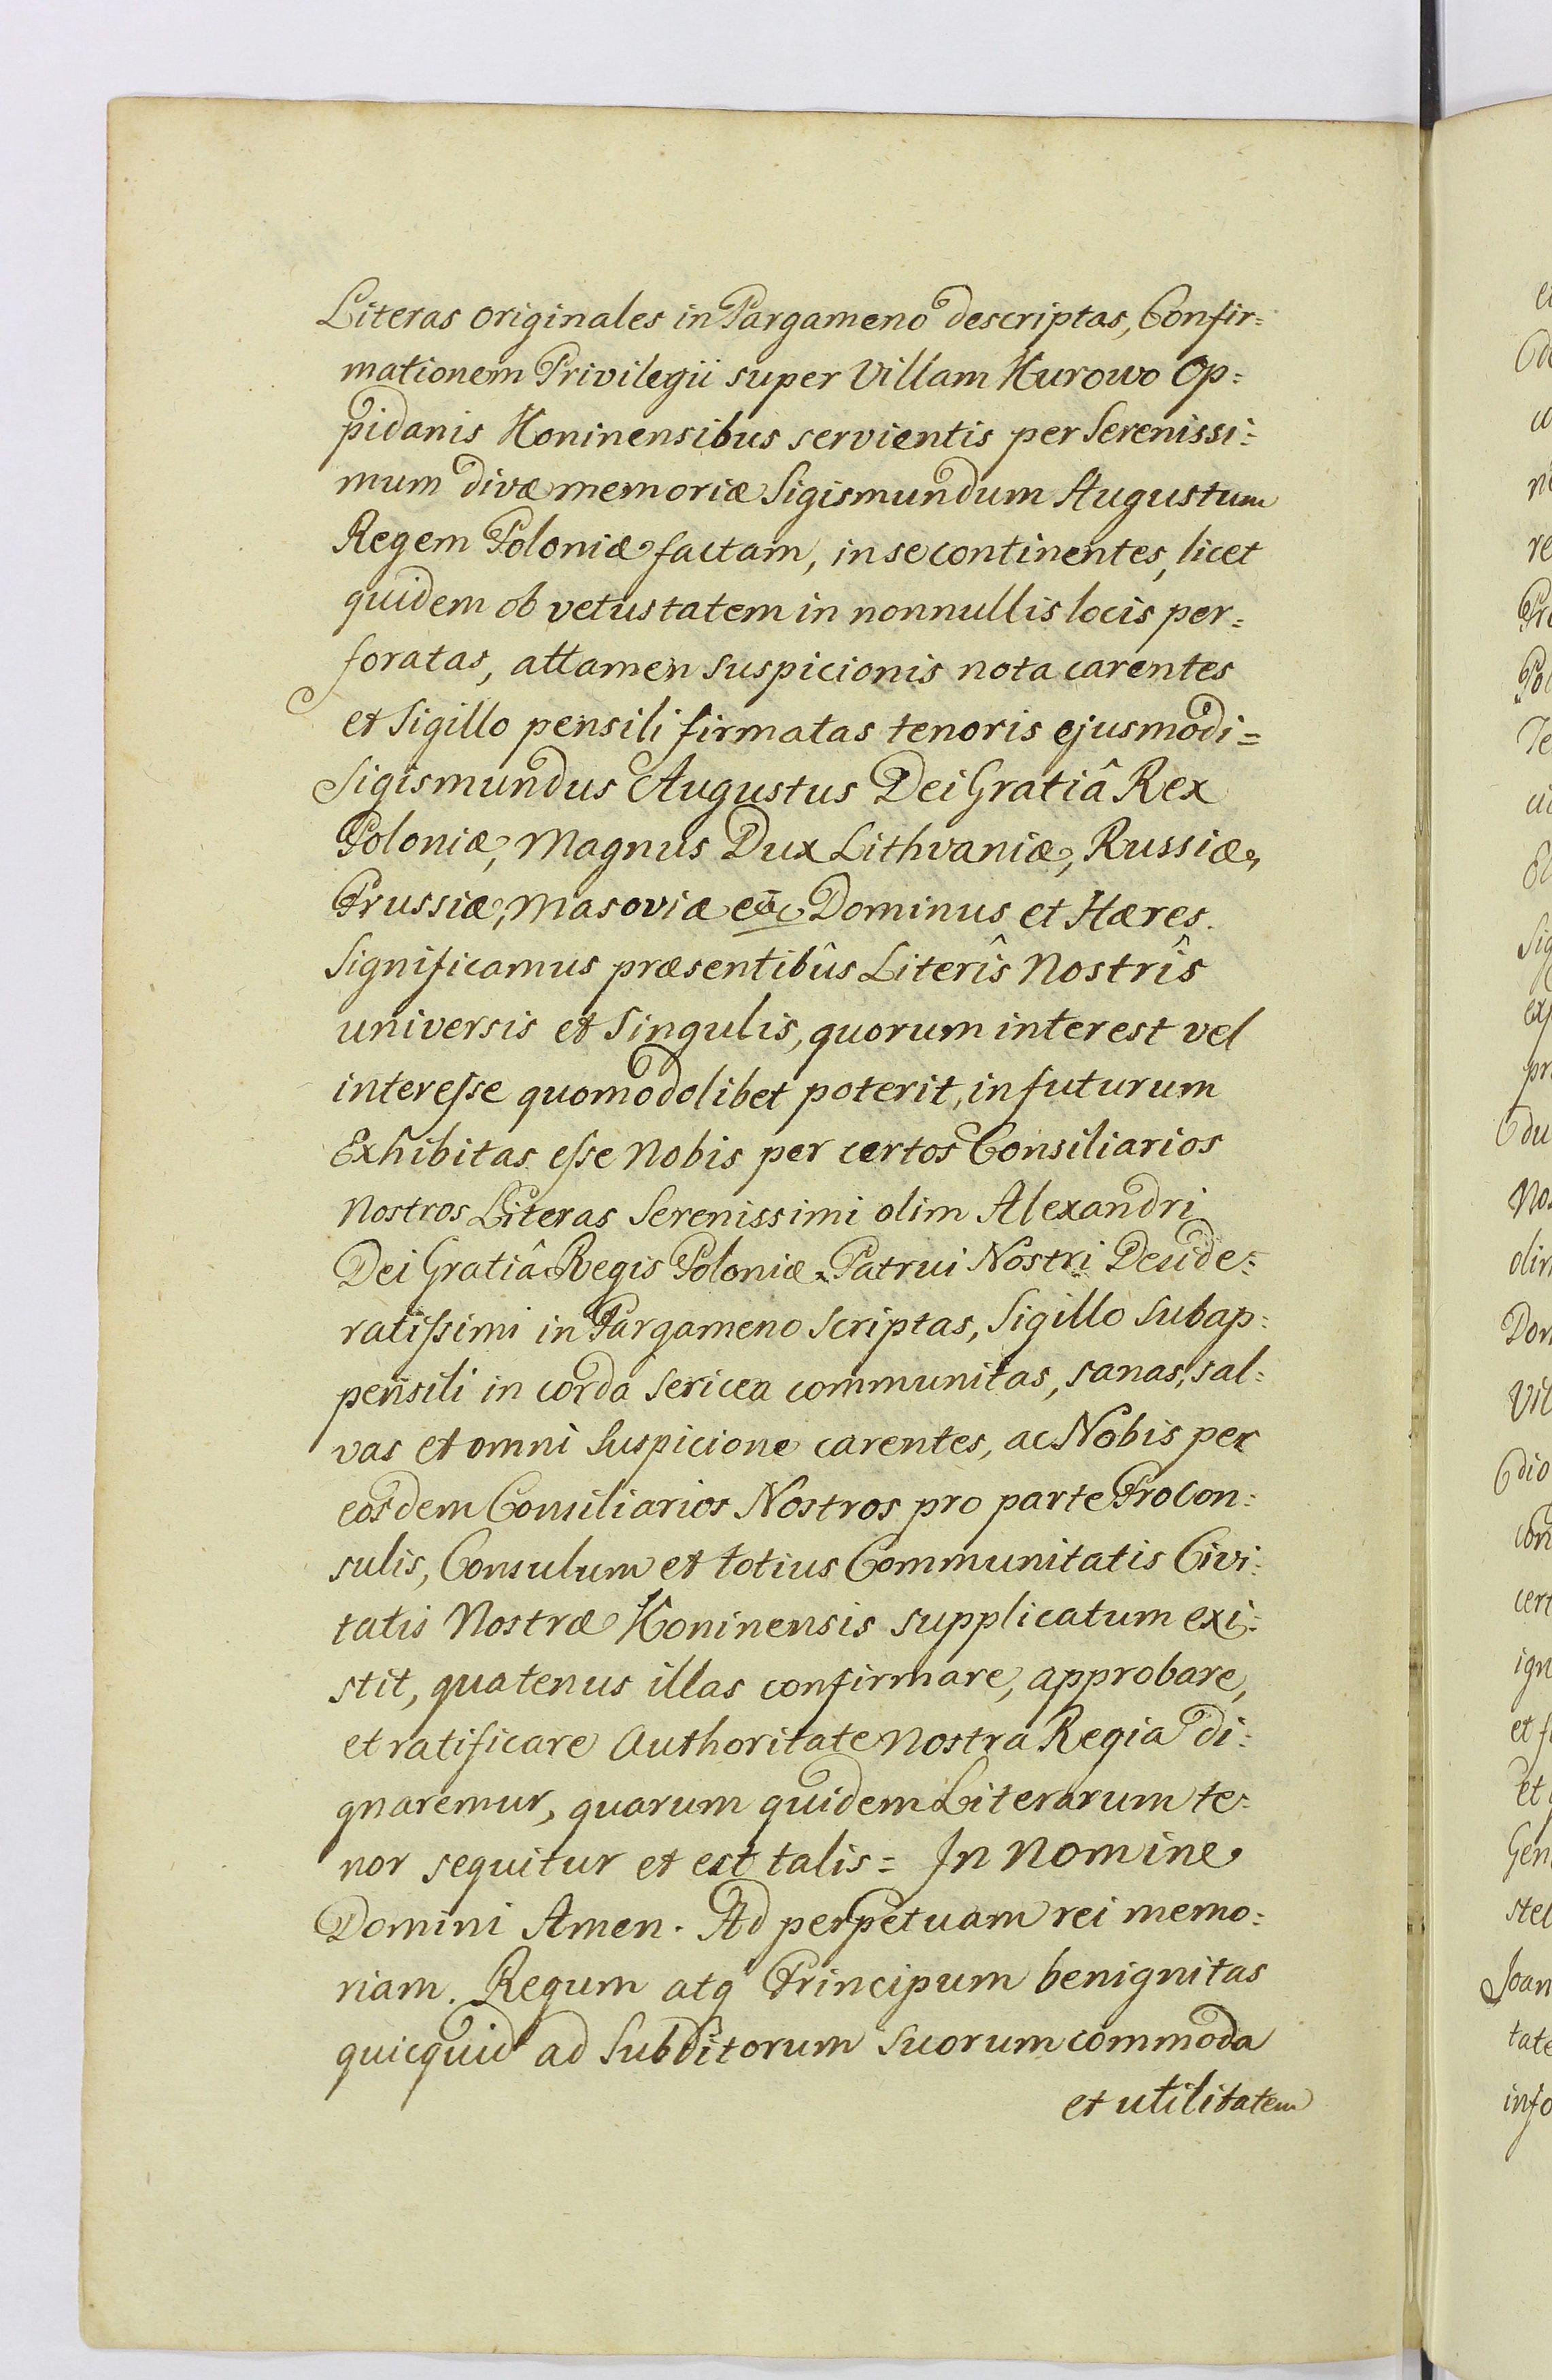 Literas originales in Pargameno descriptas, Confir=
mationem Privilegii super Villam Kurowo Op=
pidanis Koninensibus servientis per Serenissi=
mum divæ memoriæ Sigismundum Augustum
Regem Poloniæ factam, in se continentes, licet
quidem ob vetustatem in nonnullis locis per=
foratas, attamen suspicionis nota carentes
et Sigillo pensili firmatas tenoris ejusmodi=
Sigismundus Augustus Dei Gratiâ Rex
Poloniæ, Magnus Dux Lithvaniæ, Russiæ,
Prussiæ, Masoviæ etc Dominus et Hæres.
Significamus præsentibûs Literîs Nostrîs
universis et Singulis, quorum interest vel
interesse quomodolibet poterit, in futurum
Exhibitas esse Nobis per certos Consiliarios
Nostros Literas Serenissimi olim Alexandri
Dei Gratiâ Regis Poloniæ Patrui Nostri Deside=
ratissimi in Pargameno Scriptas, Sigillo Subap=
pensili in corda sericea communitas, sanas, sal=
vas et omni Suspicione carentes, ac Nobis per
eosdem Consiliarios Nostros pro parte Procon=
sulis, Consulum et totius Communitatis Civi=
tatis Nostræ Koninensis supplicatum exi=
stit, quatenus illas confirmare, approbare,
et ratificare Authoritate Nostra Regia di=
gnaremur, quarum quidem Literarum te=
nor sequitur et est talis= In Nomine
Domini Amen. Ad perpetuam rei memo=
riam. Regum atq Principum benignitas
quicquid ad Subditorum Suorum commoda
et utilitatem